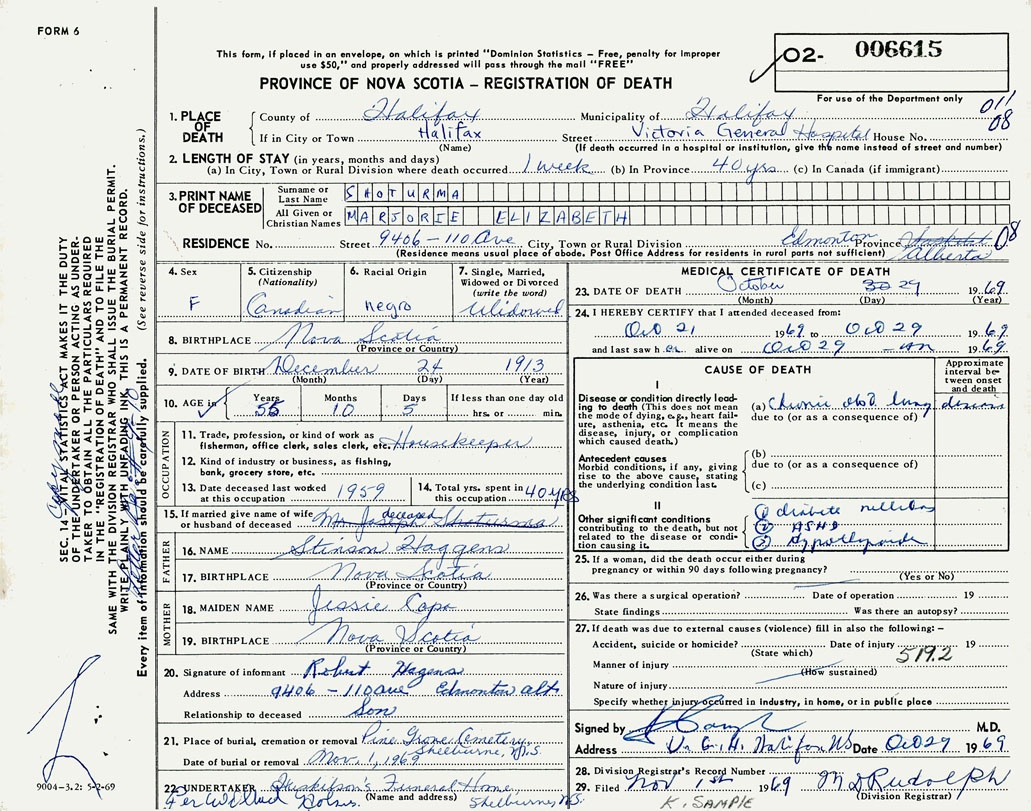 FORM 6
This form, if placed in an envelope, on which is printed "Dominion Statistics – Free, penalty for improper
use $50," and properly addressed will pass through the mail "FREE"
PROVINCE OF NOVA SCOTIA – REGISTRATION OF DEATH
02- 006615
For use of the Department only
011
08
1. PLACE OF DEATH
County of Halifax Municipality of Halifax
If in City or Town Halifax Street Victoria General Hospital House No.
(Name) (If death occurred in a hospital or institution, give the name instead of street and number)
2. LENGTH OF STAY (in years, months and days)
(a) In City, Town or Rural Division where death occurred 1 week (b) In Province 40 yrs (c) In Canada (if immigrant)
3. PRINT NAME OF DECEASED
Surname or Last Name SHOTURMA
All Given or Christian Names MARJORIE ELIZABETH
RESIDENCE No. Street 9406 – 110 Ave City, Town or Rural Division Edmonton Province Alberta 08
(Residence means usual place of abode. Post Office Address for residents in rural parts not sufficient)
4. Sex
F
5. Citizenship (Nationality)
Canadian
6. Racial Origin
negro
7. Single, Married, Widowed or Divorced (write the word)
Widowed
8. BIRTHPLACE Nova Scotia
(Province or Country)
9. DATE OF BIRTH December 24 1913
(Month) (Day) (Year)
10. AGE in
Years Months Days If less than one day old
55 10 5 hrs. or min.
OCCUPATION
11. Trade, profession, or kind of work as
fisherman, office clerk, sales clerk, etc. Housekeeper
12. Kind of industry or business, as fishing,
bank, grocery store, etc.
13. Date deceased last worked
at this occupation 1959
14. Total yrs. spent in
this occupation 40 yrs
15. If married give name of wife
or husband of deceased Mr. Joseph Shoturma
deceased
FATHER
16. NAME Stinson Haggens
17. BIRTHPLACE Nova Scotia
(Province or Country)
MOTHER
18. MAIDEN NAME Jessie Cope
19. BIRTHPLACE Nova Scotia
(Province or Country)
20. Signature of informant Robert Hagens
Address 9406 – 110 ave Edmonton alta
Relationship to deceased Son
21. Place of burial, cremation or removal Pine Grove Cemetery,
Shelburne, N.S.
Date of burial or removal Nov. 1, 1969
22. UNDERTAKER Huskilson's Funeral Home
(Name and address)
Shelburne N.S.
MEDICAL CERTIFICATE OF DEATH
23. DATE OF DEATH October 30 29 1969
(Month) (Day) (Year)
24. I HEREBY CERTIFY that I attended deceased from:
Oct 21 1969 to Oct 29 1969
and last saw her alive on Oct 29 1969
CAUSE OF DEATH
Approximate interval between onset and death
I
Disease or condition directly leading to death (This does not mean the mode of dying, e.g., heart failure, asthenia, etc. It means the disease, injury, or complication which caused death.)
(a) Chronic obst lung disease
due to (or as a consequence of)
Antecedent causes
Morbid conditions, if any, giving rise to the above cause, stating the underlying condition last.
(b)
due to (or as a consequence of)
(c)
II
Other significant conditions
contributing to the death, but not related to the disease or condition causing it.
① diabetes mellitus
② ASHD
③ Hypothyroid
25. If a woman, did the death occur either during
pregnancy or within 90 days following pregnancy?
(Yes or No)
26. Was there a surgical operation? Date of operation 19
State findings Was there an autopsy?
27. If death was due to external causes (violence) fill in also the following: –
Accident, suicide or homicide? Date of injury 19
(State which)
519.2
Manner of injury
(How sustained)
Nature of injury
Specify whether injury occurred in Industry, in home, or in public place
Signed by M.D.
Address V. G. H. Halifax NS Date Oct 29 1969
28. Division Registrar's Record Number
29. Filed Nov 1st 1969 M D Rudolph
(Division Registrar)
K. SAMPLE
SEC. 14—VITAL STATISTICS ACT MAKES IT THE DUTY
OF THE UNDERTAKER OR PERSON ACTING AS UNDER-
TAKER TO OBTAIN ALL THE PARTICULARS REQUIRED
IN THE "REGISTRATION OF DEATH" AND TO FILE THE
SAME WITH THE DIVISION REGISTRAR WHO SHALL ISSUE THE BURIAL PERMIT.
WRITE PLAINLY WITH UNFADING INK. THIS IS A PERMANENT RECORD.
Every item of information should be carefully supplied. (See reverse side for instructions.)
9004-3.2: 5-2-69